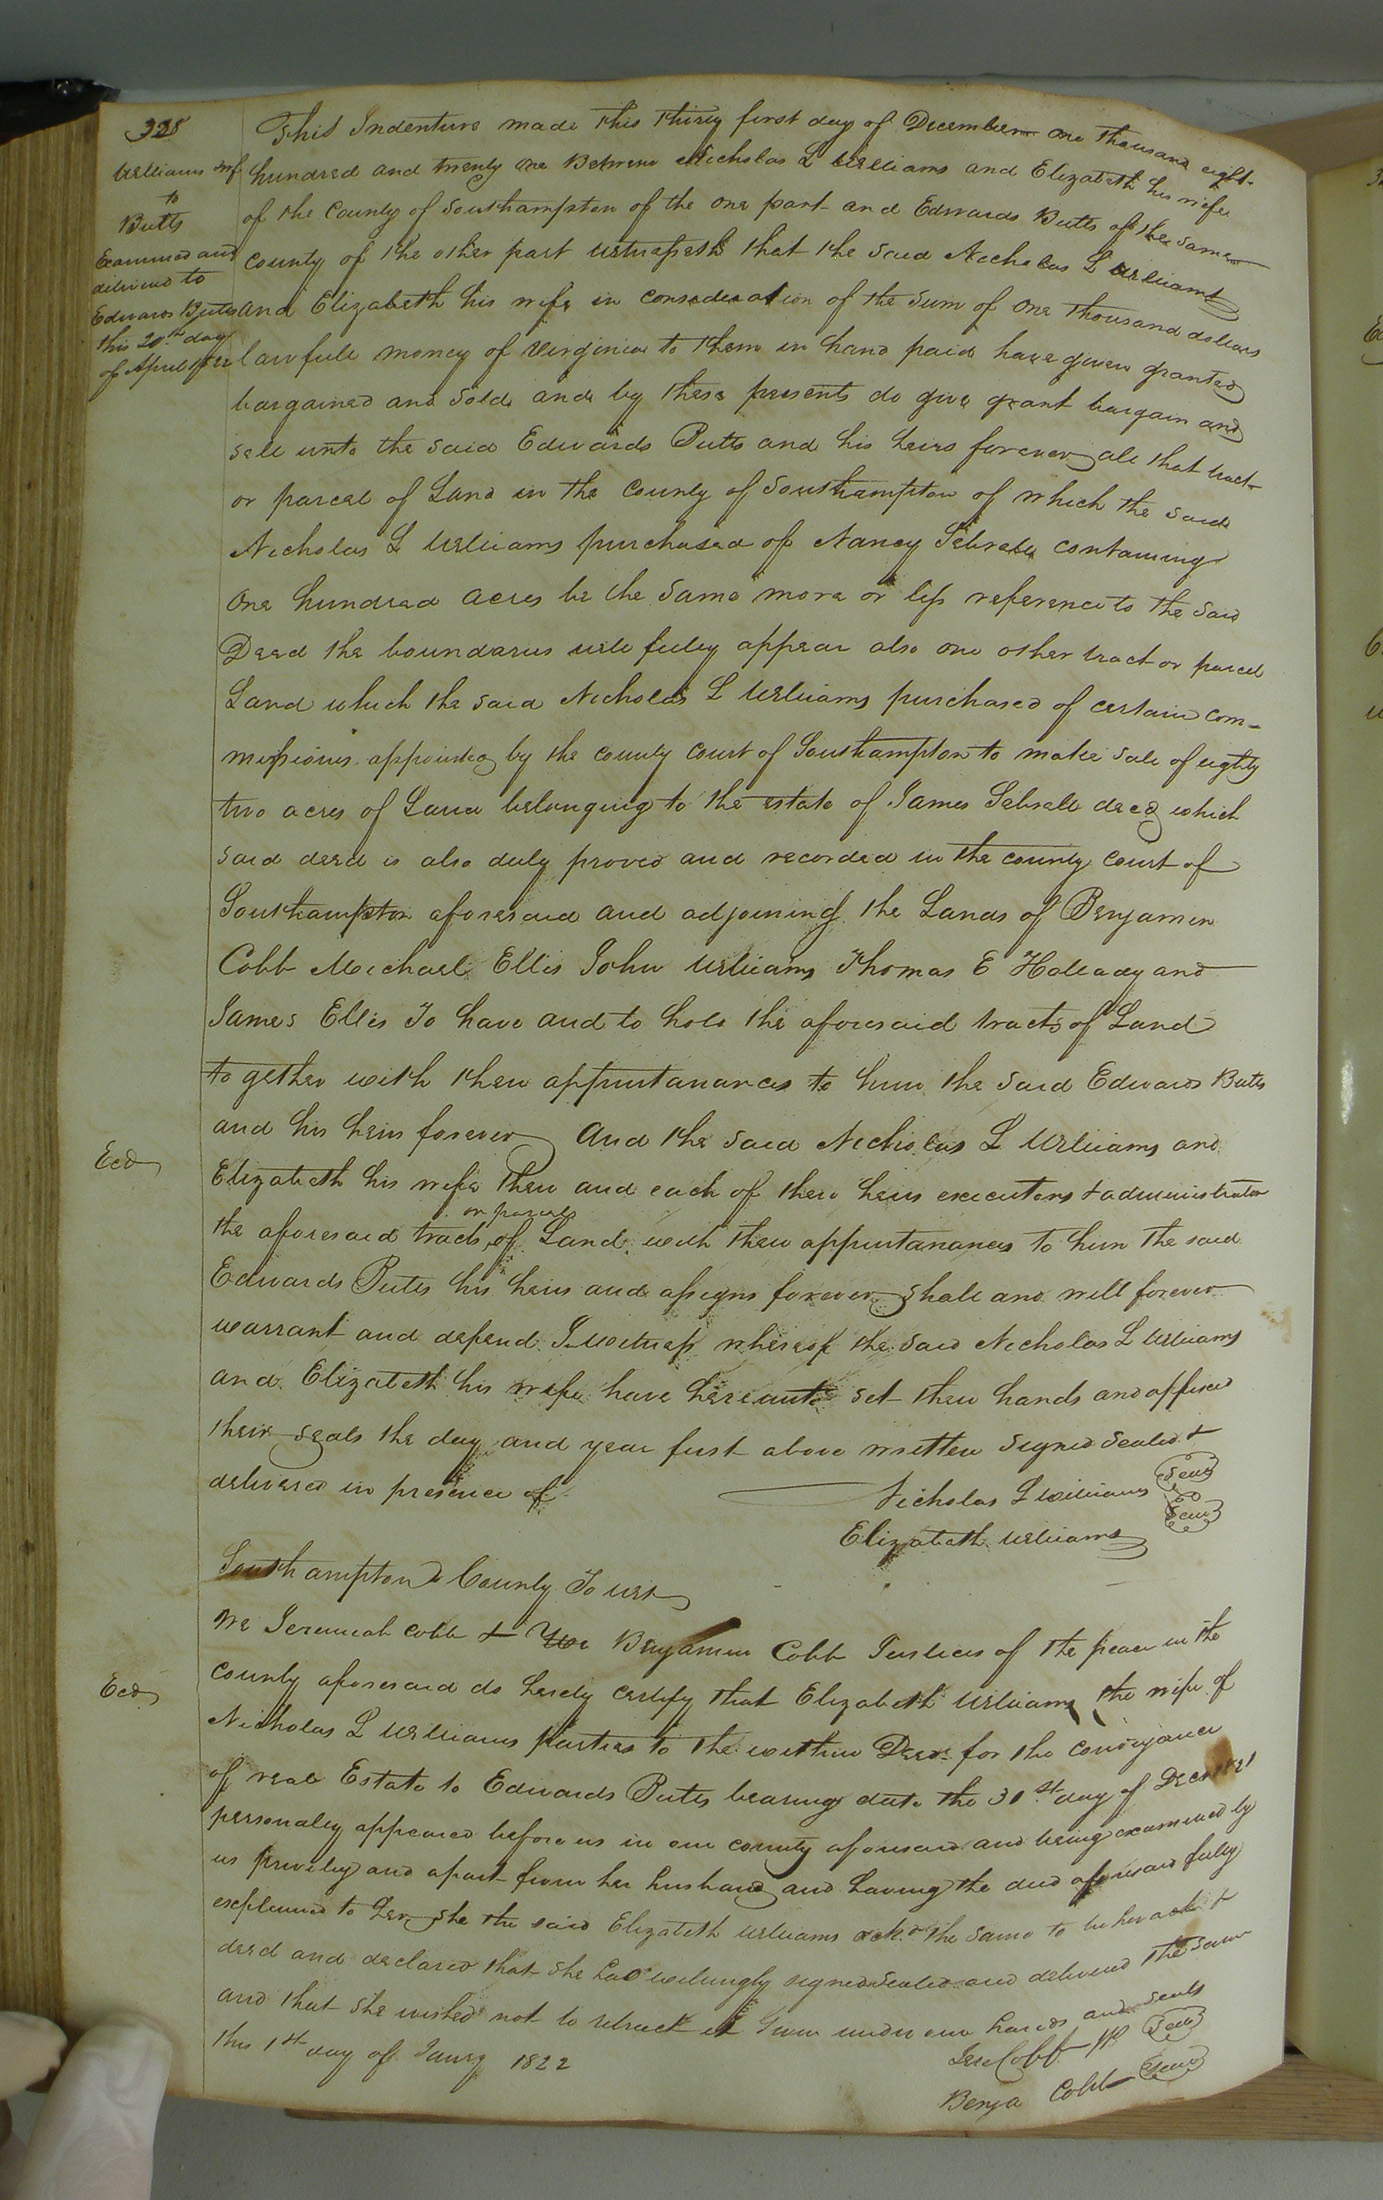 328
Williams & wf
to
Butts
Examined and
delivered to
Edwards Butts
this 20th day
of April 1822
This Indenture made this thirty first day of December one thousand eight
hundred and twenty one Between Nicholas L Williams and Elizabeth his wife
of the County of Southampton of the one part and Edwards Butts of the same
county of the other part witnesseth that the said Nicholas L Williams
and Elizabeth his wife in consideration of the sum of one thousand dollars
lawfull money of Virginia to them in hand paid have given granted
bargained and sold and by these presents do give grant bargain and
sell unto the said Edwards Butts and his heirs forever all that tract
or parcel of Land in the County of Southampton of which the said
Nicholas L Williams purchased of Nancy Sebrell containing
one hundred acres be the same more or less reference to the said
Deed the boundaries will fully appear also one other tract or parcel
Land which the said Nicholas L Williams purchased of certain com-
missioners appointed by the county court of Southampton to make sale of eighty
two acres of Land belonging to the estate of James Sebrell decd which
said deed is also duly proved and recorded in the county court of
Southampton aforesaid and adjoining the Lands of Benjamin
Cobb Michael Ellis John Williams Thomas E Holladay and
James Ellis To have and to hold the aforesaid tracts of Land
together with their appurtanances to him the said Edwards Butts
and his heirs forever And the said Nicholas L Williams and
Ecd
Elizabeth his wife their and each of their heirs executors & administrators
or parcels
the aforesaid tracts of Land with their appurtanances to him the said
Edwards Butts his heirs and assigns forever shall and will forever
warrant and defend In witness whereof the said Nicholas L Williams
and Elizabeth his wife have hereunto set their hands and affixed
their seals the day and year first above written signed sealed &
delivered in presence of
Nicholas L Williams Seal
Elizabeth Williams Seal
Southampton County To wit
We Jeremiah Cobb & Benjamin Cobb Justices of the peace in the
county aforesaid do hereby certify that Elizabeth Williams the wife of
Ecd
Nicholas L Williams parties to the within Deed for the conveyance
of real Estate to Edwards Butts bearing date the 31st day of Decr 1821
personally appeared before us in our county aforesaid and being examined by
us privily and apart from her husband and having the deed aforesaid fully
explained to her she the said Elizabeth Williams ackd the same to be her act &
deed and declared that she had willingly signed sealed and delivered the same
and that she wished not to retract it Given under our hands and seals
this 1st day of Jany 1822
Jere Cobb JP Seal
Benja Cobb Seal